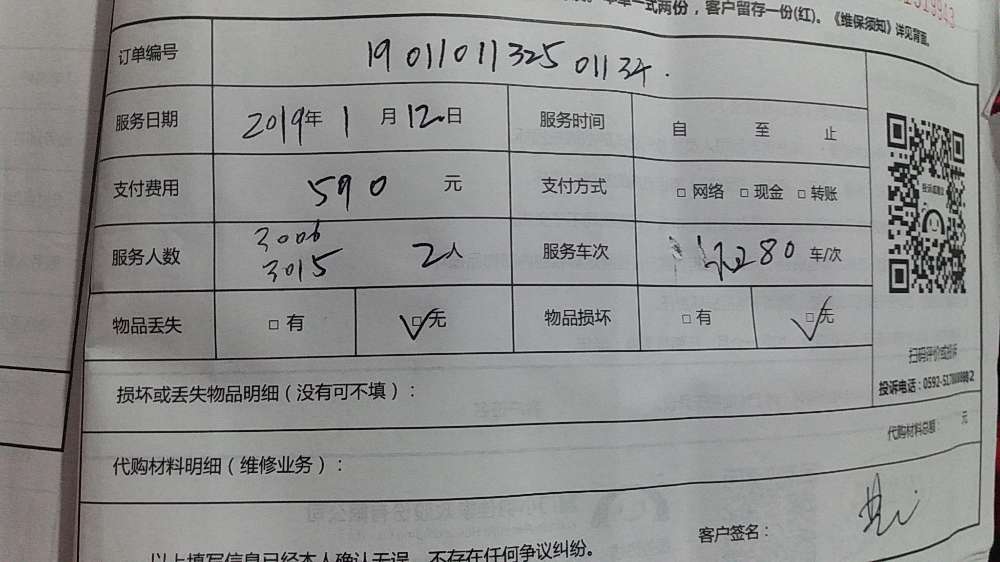 一式两份，客户留存一份(红)。《维保须知》详见背面。
订单编号 19011011325 01134
服务日期 2019年 1 月 12 日 服务时间 自 至 止
支付费用 590 元 支付方式 □ 网络 □ 现金 □ 转账
服务人数 3006 3015 2人 服务车次 280 车/次
物品丢失 □ 有 □ 无 物品损坏 □ 有 □ 无
扫码评价或投诉
损坏或丢失物品明细（没有可不填）：
代购材料总额： 元
代购材料明细（维修业务）：
客户签名：
以上填写信息已经本人确认无误，不存在任何争议纠纷。